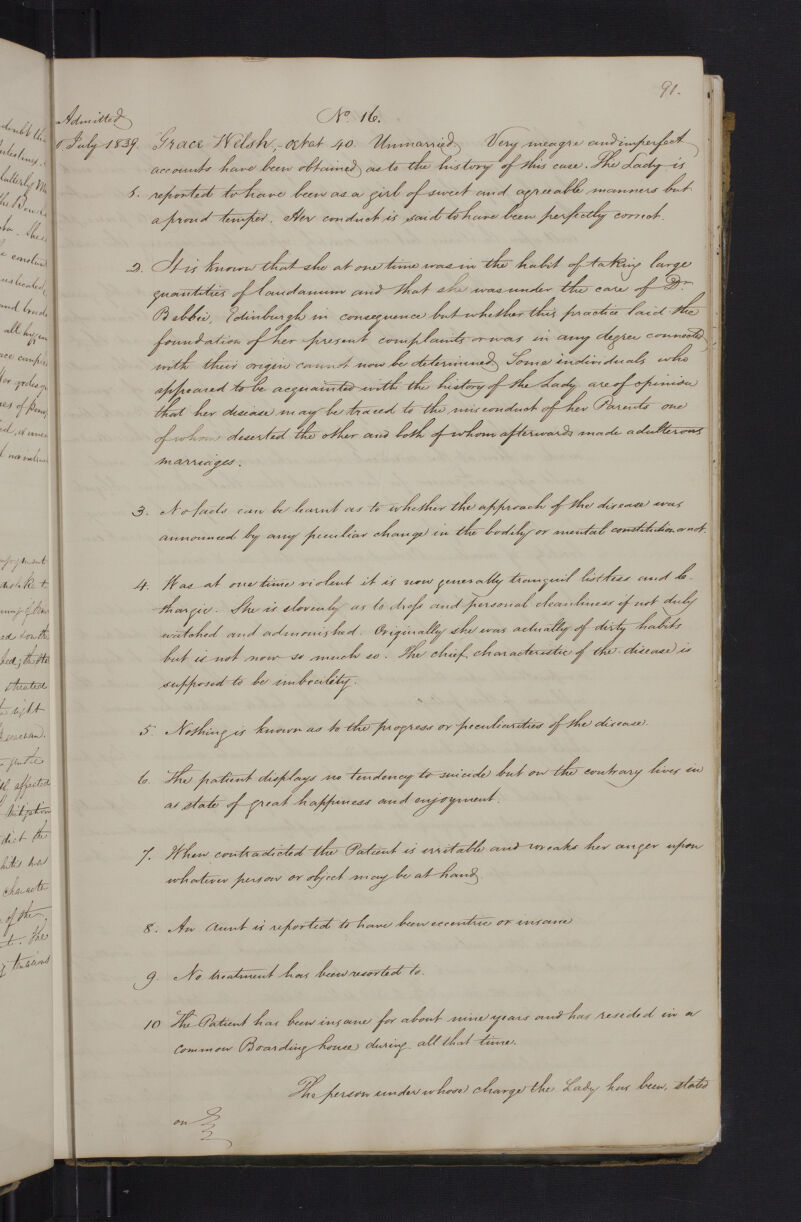 91.
Admitted
No 16.
July 1839. Grace Welsh, octat 40. Unmarried. Very meagre and imperfect
accounts have been obtained as to the history of this case. The Lady is
1. reported to have been as a girl of sweet and agreeable manners but
a proud temper. Her conduct is said to have been perfectly correct.
2. It is known that she at one time was in the habit of taking large
quantities of laudanum and that she was under the care of Dr
Edinburgh in consequence but whether this practice laid the
foundation of her present complaint or was in any degree connected
with their origin cannot now be determined. Some individuals who
appeared to be acquainted with the history of the Lady are of opinion
that her disease may be traced to the misconduct of her Parents one
of whom deserted the other and both of whom afterwards made adulterous
marriages.
3. No facts can be learnt as to whether the approach of the disease was
announced by any peculiar change in the bodily or mental constitution or not.
4. Was at one time violent it is now generally tranquil listless and le-
thargic. She is slovenly as to dress and personal cleanliness if not duly
watched and admonished. Originally she was actually of dirty habits
but is not now so much so. The chief characteristic of the disease is
supposed to be imbecility.
5. Nothing is known as to the progress or peculiarities of the disease.
6. The patient displays no tendency to suicide but on the contrary lives in
a state of great happiness and enjoyment.
7. When contradicted the Patient is irritable and wreaks her anger upon
whatever person or object may be at hand.
8. An aunt is reported to have been eccentric or insane
9 No treatment has been resorted to.
10 The Patient has been insane for about nine years and has resided in a
common Boarding house during all that time.
The person under whose charge the Lady has been, stated
on